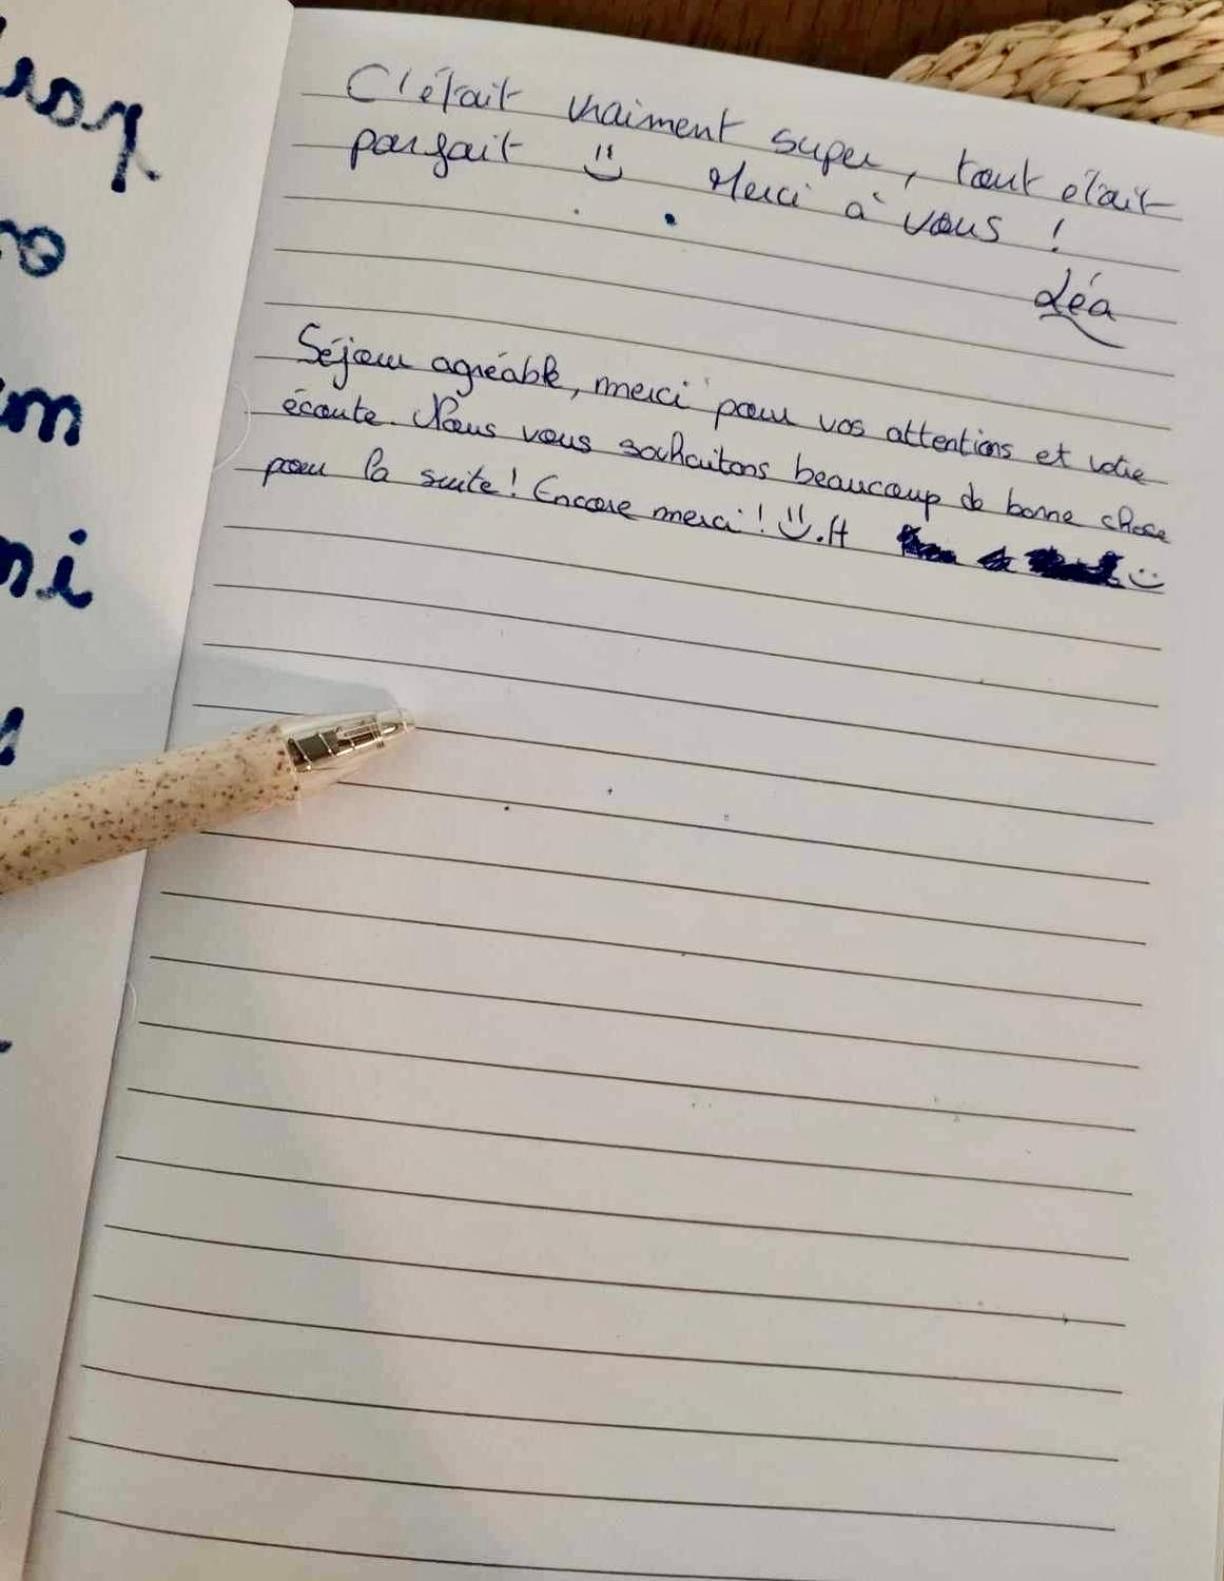 C'était vraiment super, tout était
parfait Merci à vous !
Léa
Séjour agréable, merci pour vos attentions et votre
écoute. Nous vous souhaitons beaucoup de bonne chose
pour la suite ! Encore merci !